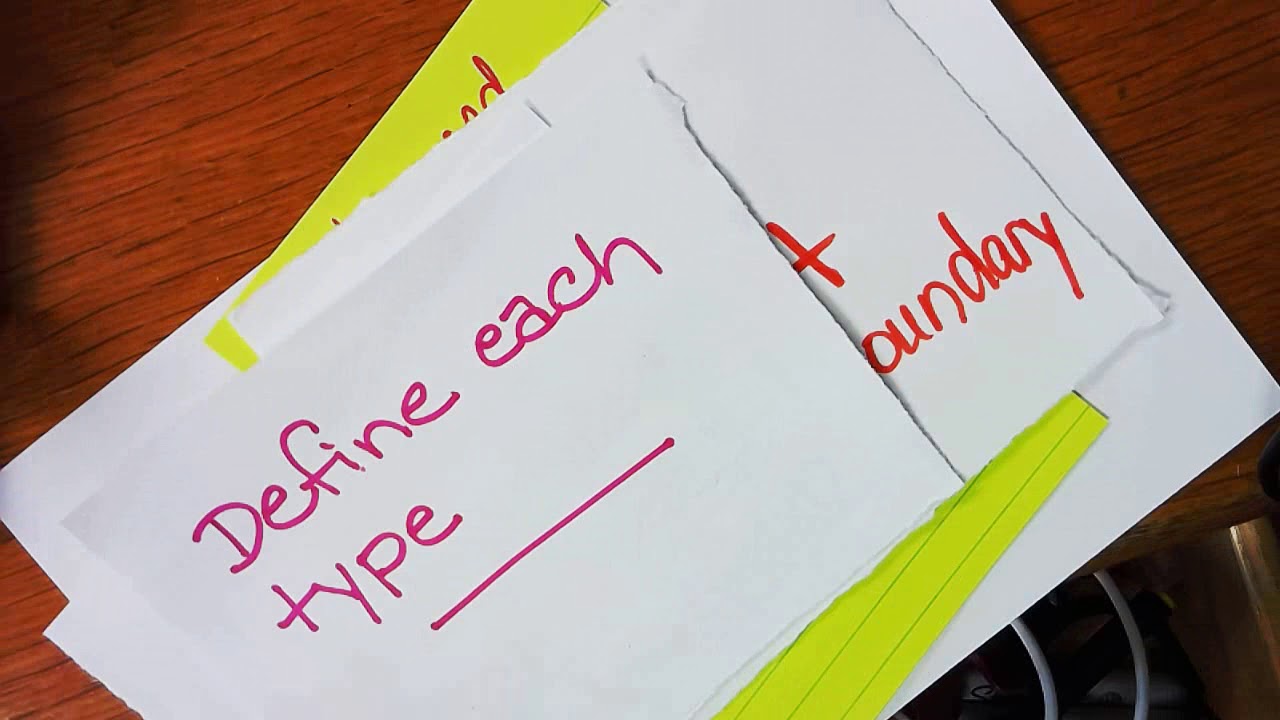 Define each
type
t
oundary